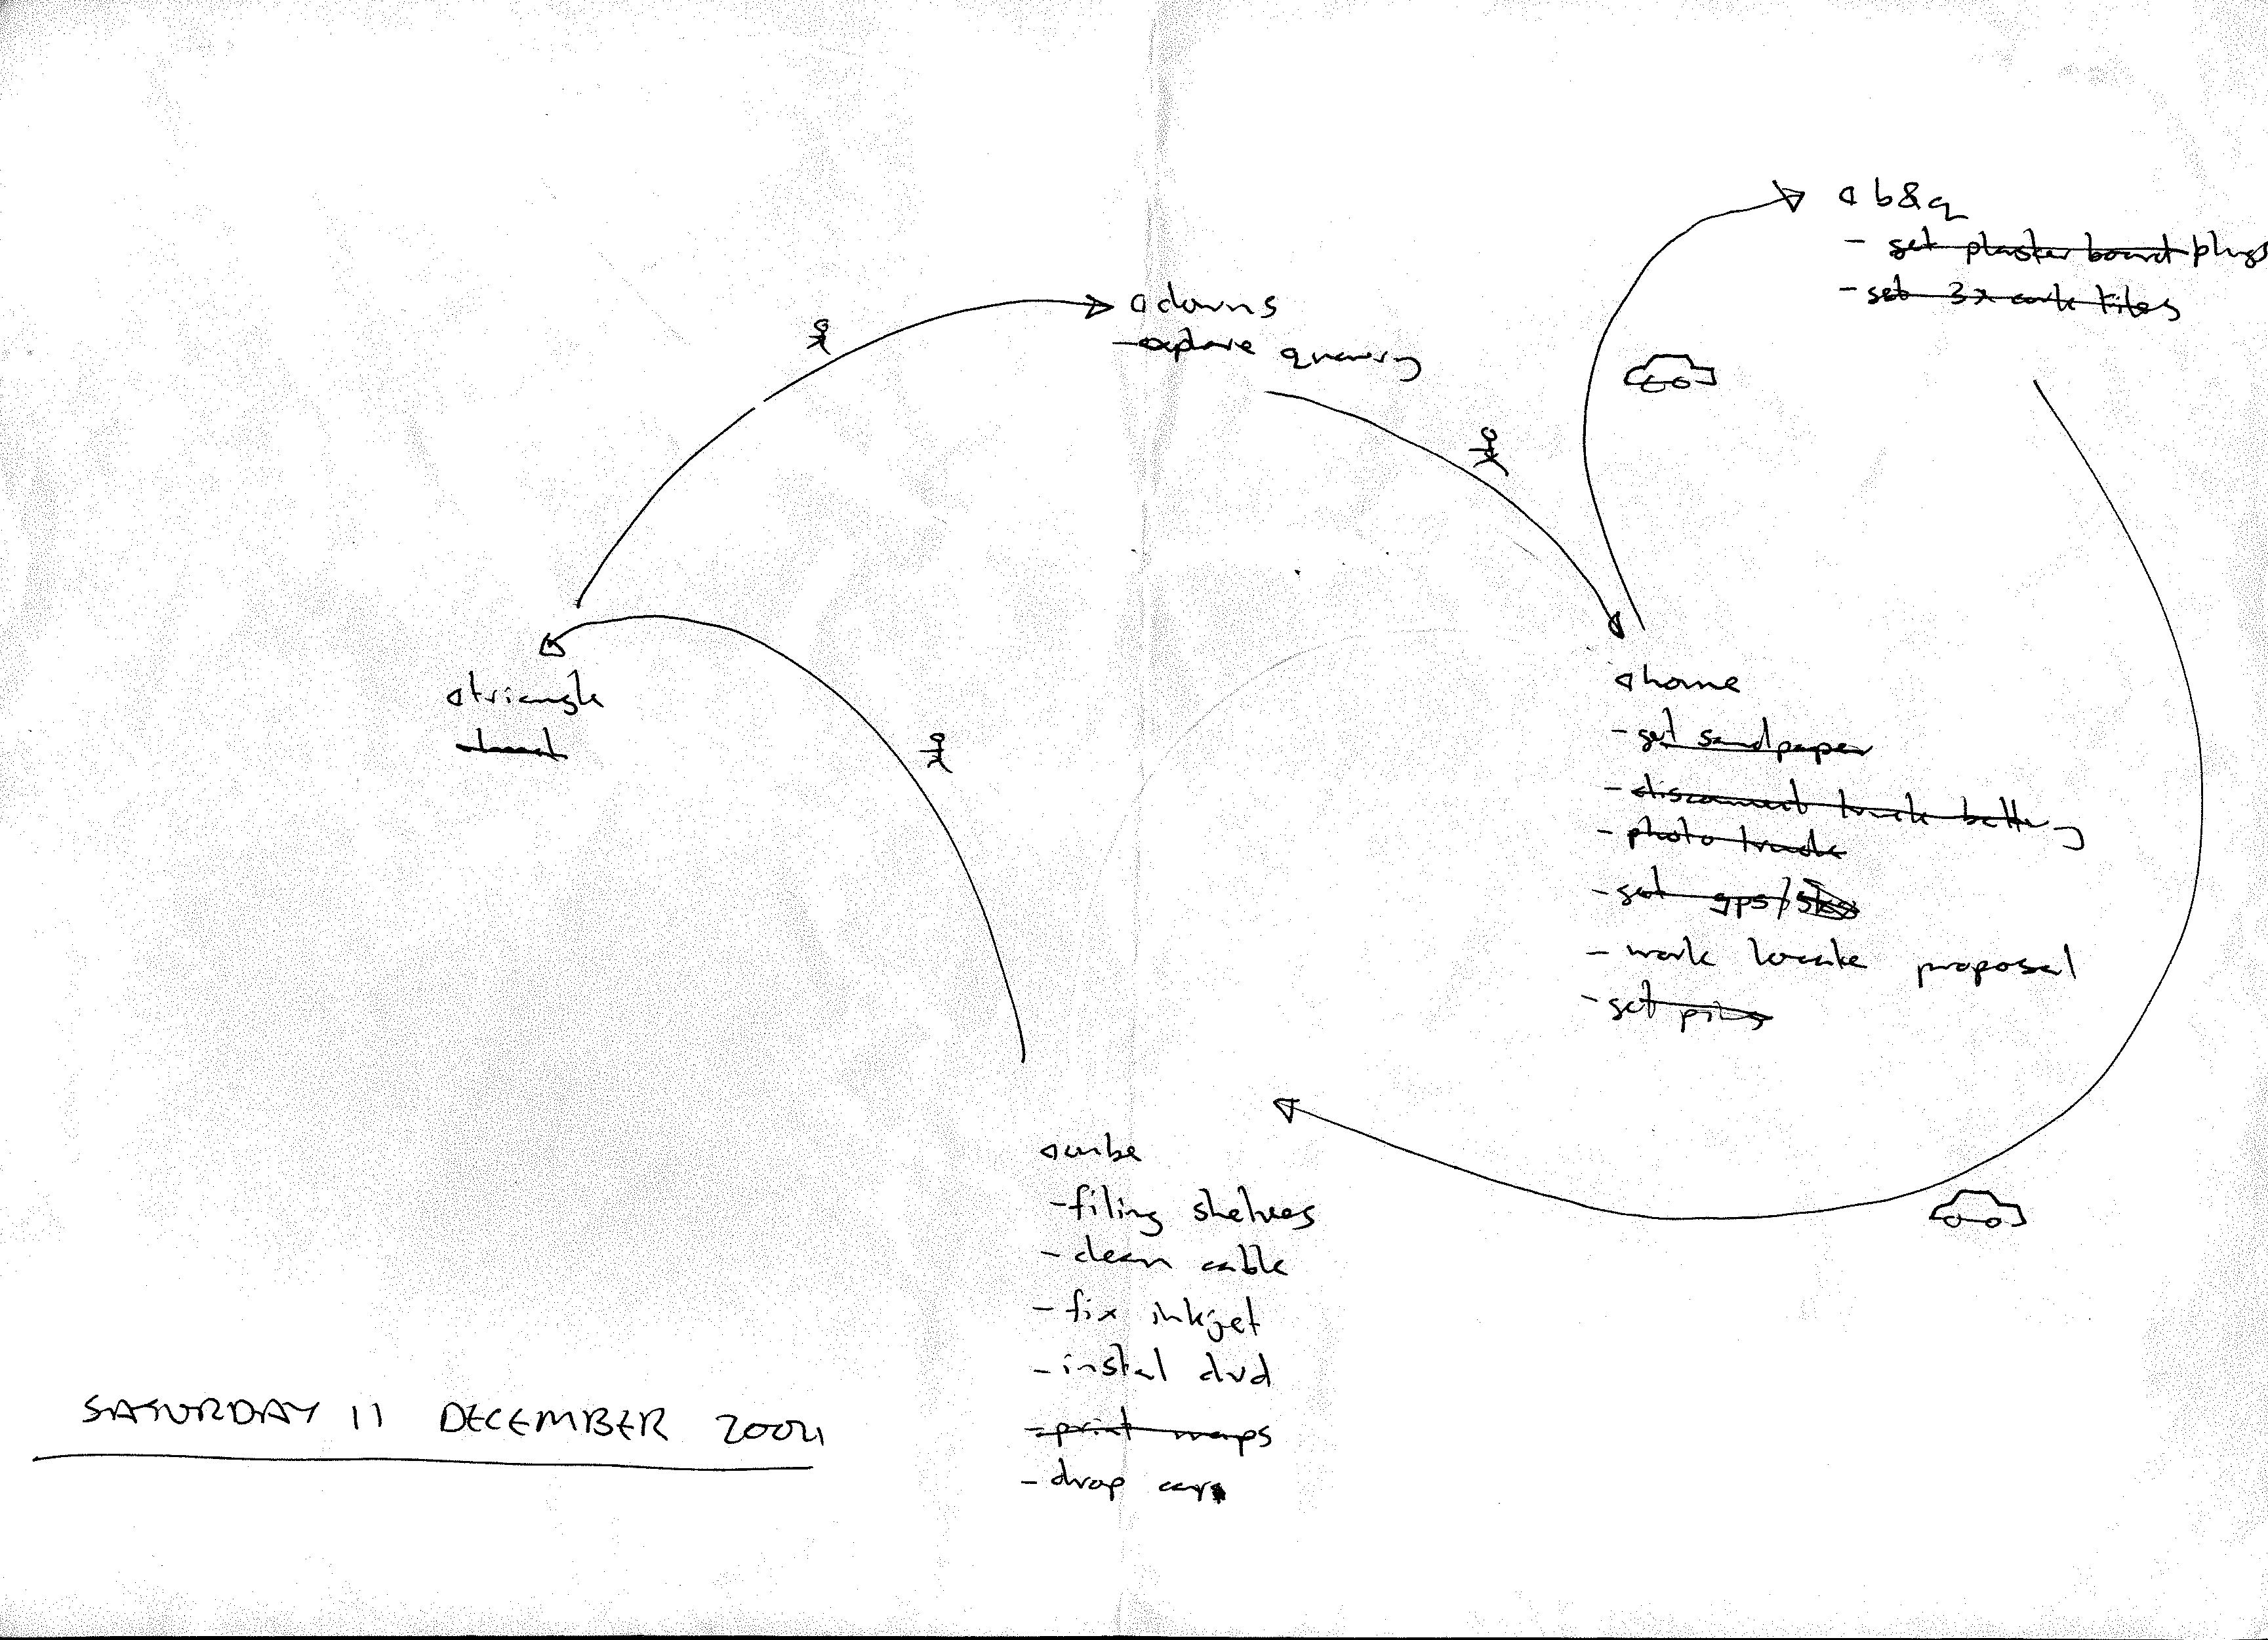 b&q
- get plaster board plugs
- get 3x cork tiles
downs
- explore quarry
home
- get sandpaper
- disconnect truck battery
- photo truck
- get gps/
- work locate proposal
- get pills
triangle
cube
- filing shelves
- clean cable
- fix inkjet
- instal dvd
- print maps
- drop car
SATURDAY 11 DECEMBER 2004